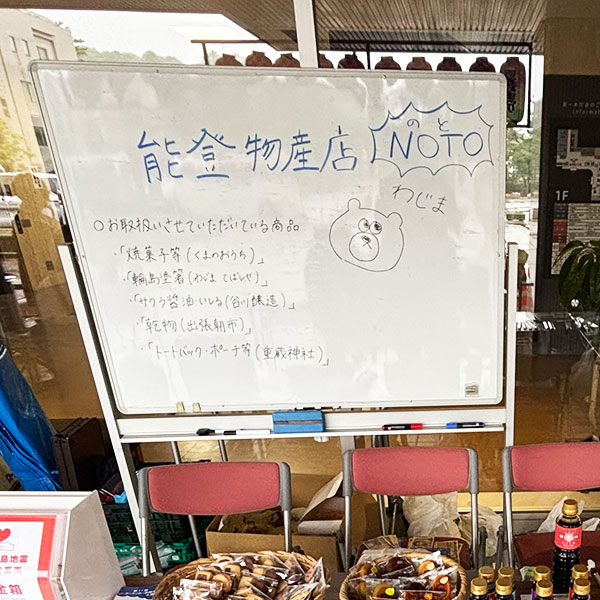 能登物産店
のと
NOTO
わじま
○お取扱いさせていただいている商品
・「焼菓子等(くまのおうち)」
・「輪島塗箸(わじまてばしや)」
・「サクラ醤油・いしる(谷川醸造)」
・「乾物(出張朝市)」
・「トートバック・ポーチ等(重蔵神社)」
1F
島地震
金箱